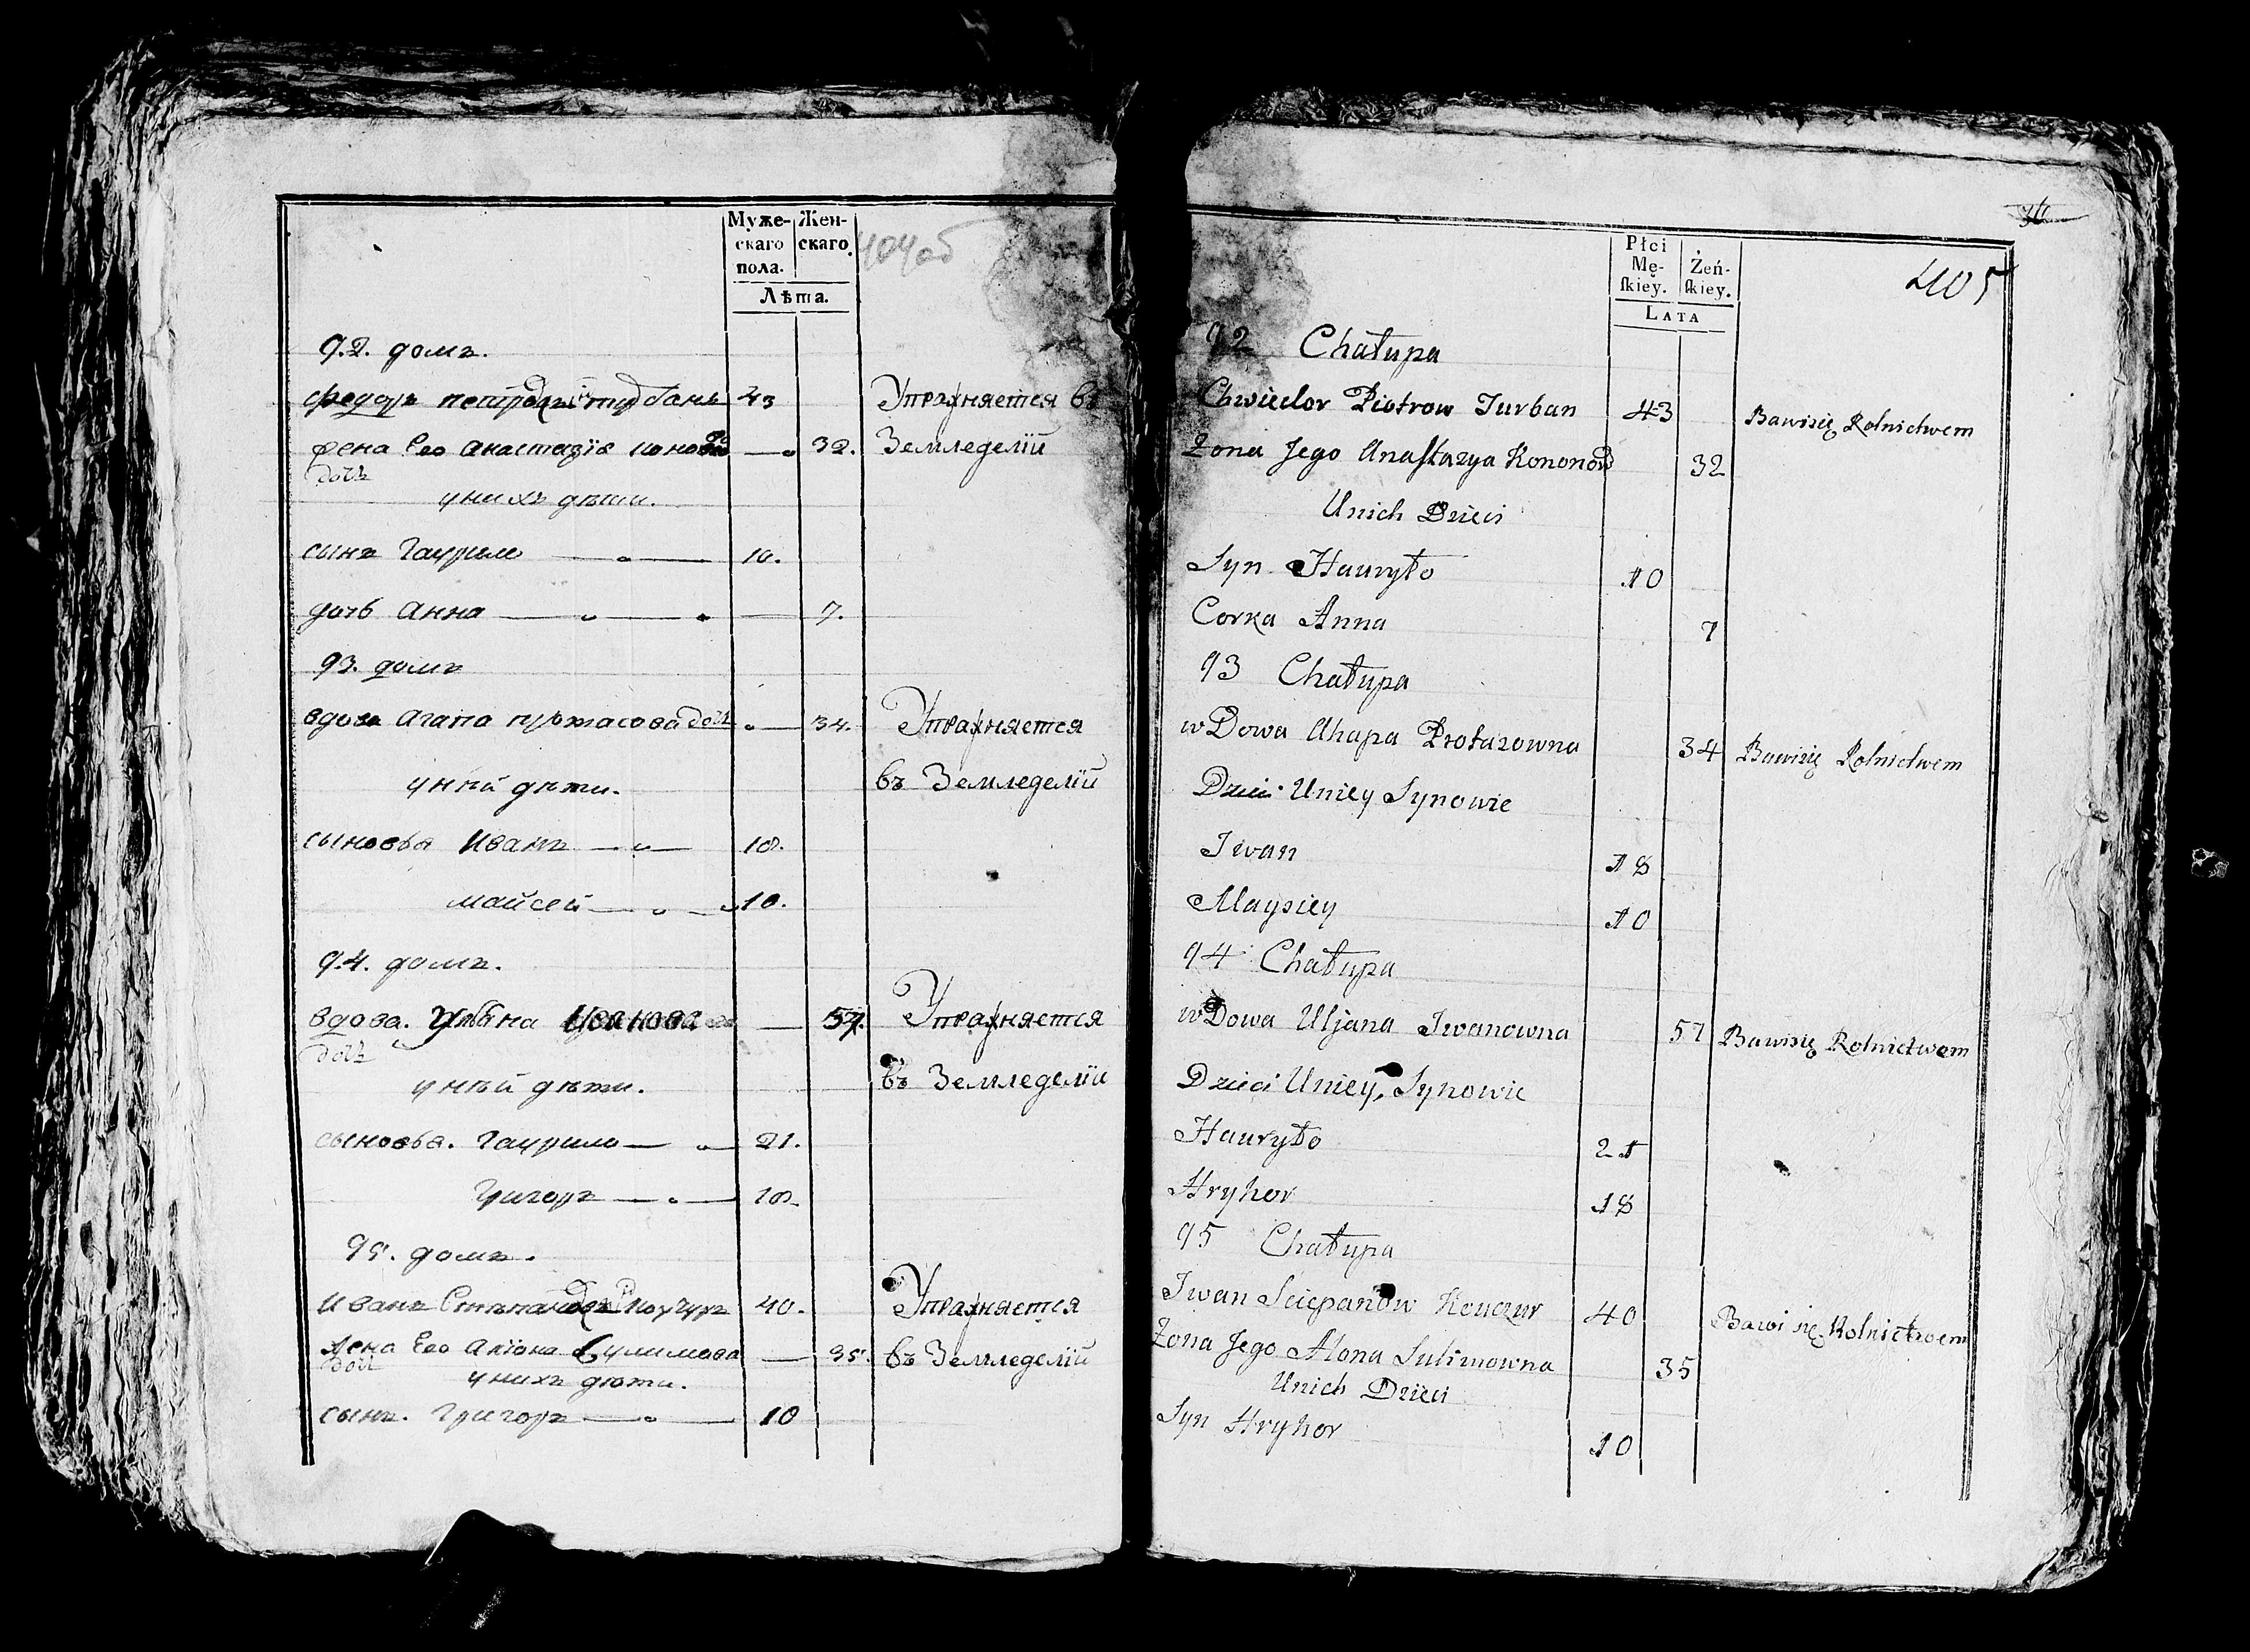 Муже-
скаго
пола.
Жен-
скаго.
Лѣта.
404об
92. домъ.
Федоръ Турбанъ 43 Упражняется въ
жена Его Анастазія 32. Земледеліи
дочь
у нихъ дѣти.
сынъ Гаурило 10.
дочь Анна 7.
93. домъ
вдова Агапа Протасова дочь 34. Упражняется
у ней дѣти. въ Земледеліи
сыновья Иванъ 18.
Майсей 10.
94. домъ.
вдова. Ульяна Иванова 57. Упражняется
дочь
у ней дѣти. въ Земледеліи
сыновья. Гаурило 21.
Григоръ 18.
95. домъ.
Иванъ 40. Упражняется
жена Его Алiона Сулимова 35. въ Земледеліи
дочь
у нихъ дѣти.
сынъ. Григоръ 10
Płci
Mę-
ſkiey.
Żeń-
ſkiey.
LATA
405
92 Chałupa
Chwiedor Piotrow Turban 43 Bawisię Rolnictwem
Żona Jego Anaſtazya Kononow 32
Unich Dzieci
Syn Hauryło 10
Corka Anna 7
93 Chałupa
wDowa Ahapa Protazowna 34 Bawisię Rolnictwem
Dzieci Uniey Synowie
Iwan 18
Maysiey 10
94 Chałupa
wDowa Uljana Iwanowna 57 Bawisię Rolnictwem
Dzieci Uniey, Synowie
Hauryło 21
Hryhor 18
95 Chałupa
Iwan Sciepanow Kouczur 40 Bawi się Rolnictwem
Żona Jego Alona Sulimowna 35
Unich Dzieci
Syn Hryhor 10